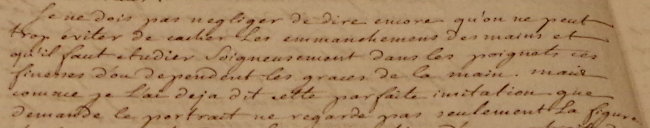 Je ne dois pas negliger de dire encore qu'on ne peut
trop éviter de cacher Les emmanchemens des mains et
qu'il faut etudier Soigneusement dans les poignets ces
finesses d'ou dependent les graces de la main. mais
comme je L'ai deja dit cette parfaite imitation que
demande le portrait ne regarde pas seulement La figure